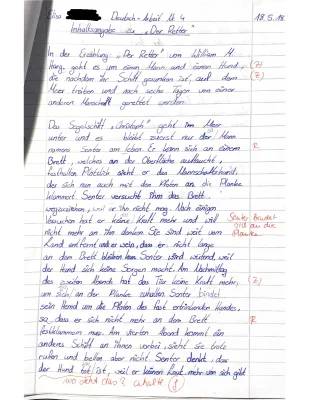 Elisa Deutsch-Arbeit Nr. 4 18.5.18
Inhaltsangabe zu „Der Retter"
In der Erzählung „Der Retter" von William M.
Harg, geht es um einen Mann und einen Hund, (Z)
die nachdem ihr Schiff gesunken ist, auf dem (Z)
Meer treiben und nach sechs Tagen von einer
anderen Manschaft gerettet werden.
Das Segelschiff „Christoph" geht im Meer
unter und es bleibt zuerst nur der Mann
namens Senter am Leben. Er kann sich an einem R
Brett, welches an der Oberfläche auftaucht,
festhalten. Plötzlich sieht er den Mannschaftshund,
der sich nun auch mit den Pfoten an die Planke
klammert. Senter versucht ihm das Brett
wegzuziehen, weil er ihn nicht mag. Nach einigen
Versuchen hat er keine Kraft mehr und will
nicht mehr an ihn denken. Sie sind weit vom
Land entfernt und er weiß, dass er nicht lange
an dem Brett bleiben kann. Senter wird wütend, weil
der Hund sich keine Sorgen macht. Am Nachmittag
des zweiten Abends hat das Tier keine Kraft mehr, (Z)
um sich an der Planke zuhalten. Senter bindet
Senter bindet
sich an die
Planke
sein Hund um die Pfoten des fast ertrinkenden Hundes,
so dass er sich nicht mehr an dem Brett R
festklammern muss. Am vierten Abend kommt ein
anderes Schiff an ihnen vorbei, sieht sie bitte
rufen und bellen aber nicht. Senter denkt, das
der Hund tot ist, weil er keinen Laut mehr von sich gibt
wo steht das?